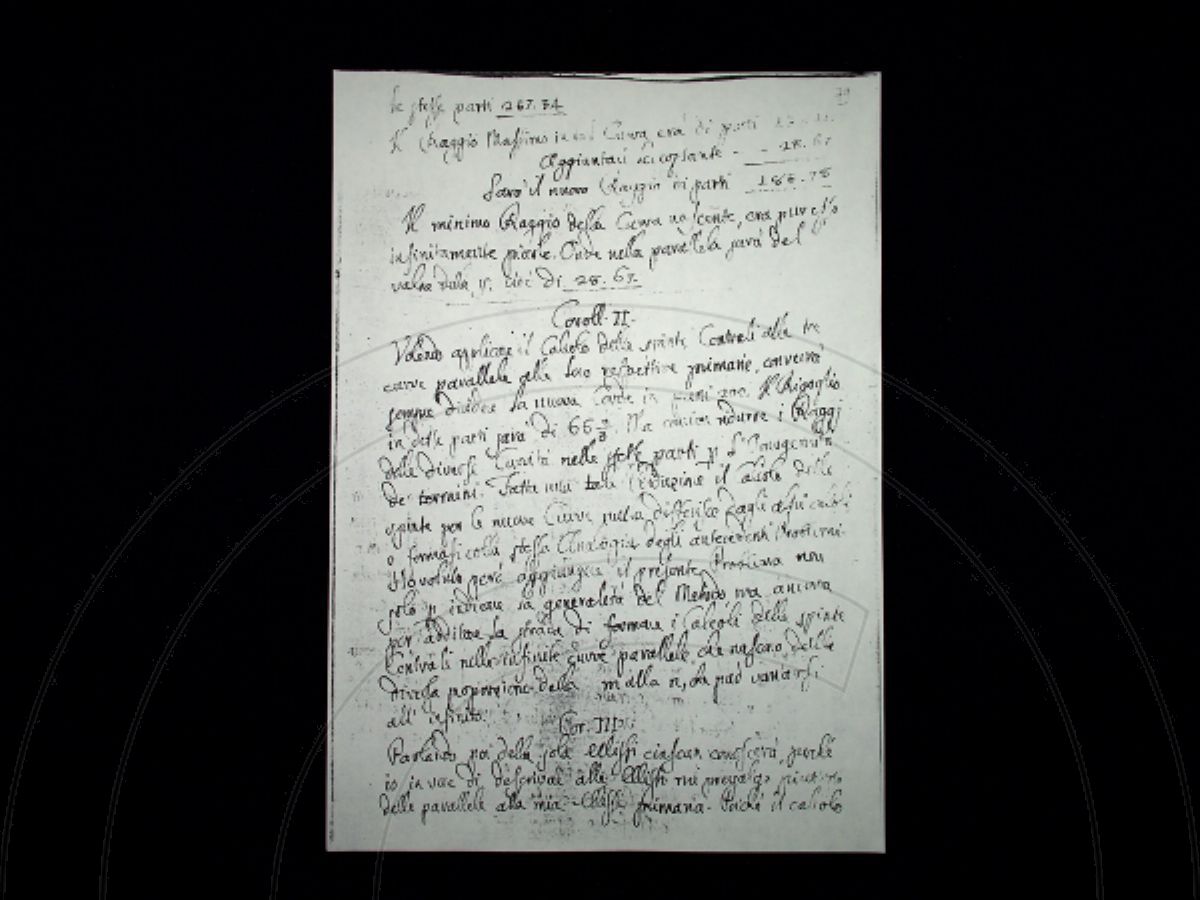 le stesse parti 267.34
Il Raggio Massimo in tal Curva era di parti
Aggiuntavi la costante - - 28.67
Sarà il nuovo Raggio in parti 186.78
Il minimo Raggio della Curva nascente, era pur esso
infinitamente piccolo. Onde nella parallela sarà del
valor della cioè di 28.67.
Coroll. II.
Volendo applicare il Calcolo delle spinte Centrali alle tre
curve parallele alle loro respettive primarie, converrà
sempre dividere la nuova Corda in parti 200. Il Rigoglio
in dette parti sarà di 66 2/3. Ma convien ridurre i Raggi
delle diverse Curvità nelle stesse parti p l'Omogeneità
de' termini. Fatta una tale riduzione il Calcolo delle
spinte per le nuove Curve nulla differisce dagli altri calcoli
e formasi colla stessa Analogia degli antecedenti Problemi.
Ho voluto però aggiungere il presente Problema non
solo p indicare la generalità del Metodo ma ancora
per additare la strada di formare i Calcoli delle spinte
Centrali nelle infinite curve parallele che nascono dalla
diversa proporzione della m alla n, che può variarsi
all'infinito.
Cor. III.
Parlando poi delle sole Ellissi ciascun conoscerà, perchè
io in vece di descrivere altre Ellissi mi prevalgo piuttosto
delle parallele alla mia Ellisse primaria. Poichè il calcolo